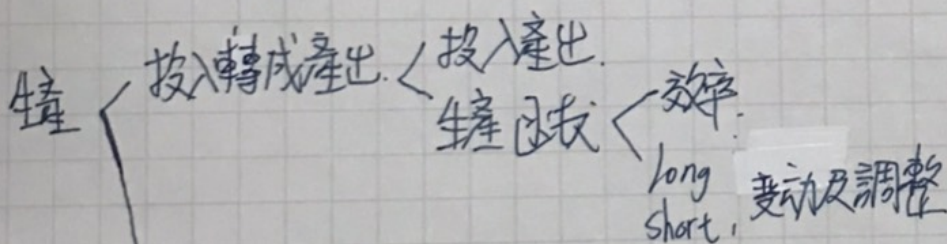 生產
投入轉成產出.
投入產出.
生產函数
效率.
long
short, 变动及調整